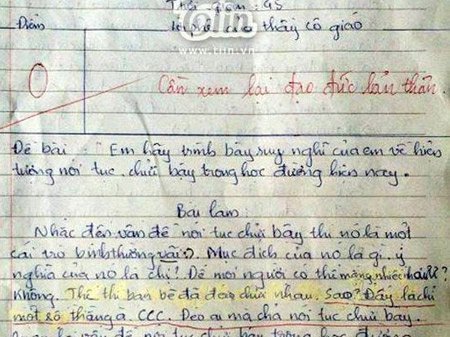 Thời gian: 95
Tiin
www.tiin.vn
Điểm
Lời phê của thầy cô giáo
0
Cần xem lại đạo đức bản thân.
Đề bài: Em hãy trình bày suy nghĩ của em về hiện
tượng nói tục, chửi bậy trong học đường hiện nay.
Bài làm
Nhắc đến vấn đề nói tục chửi bậy thì nó là một
cái trò bình thường vãi. Mục đích của nó là gì, ý
nghĩa của nó là chi? Để mọi người có thể mắng nhiếc nhau?
Không. Thế thì bạn bè đã đéo chửi nhau. Sao? Đấy là chỉ
một số thằng a. CCC. Đéo ai mà chả nói tục chửi bậy.
vấn đề nói tục chửi bậy trong học đường